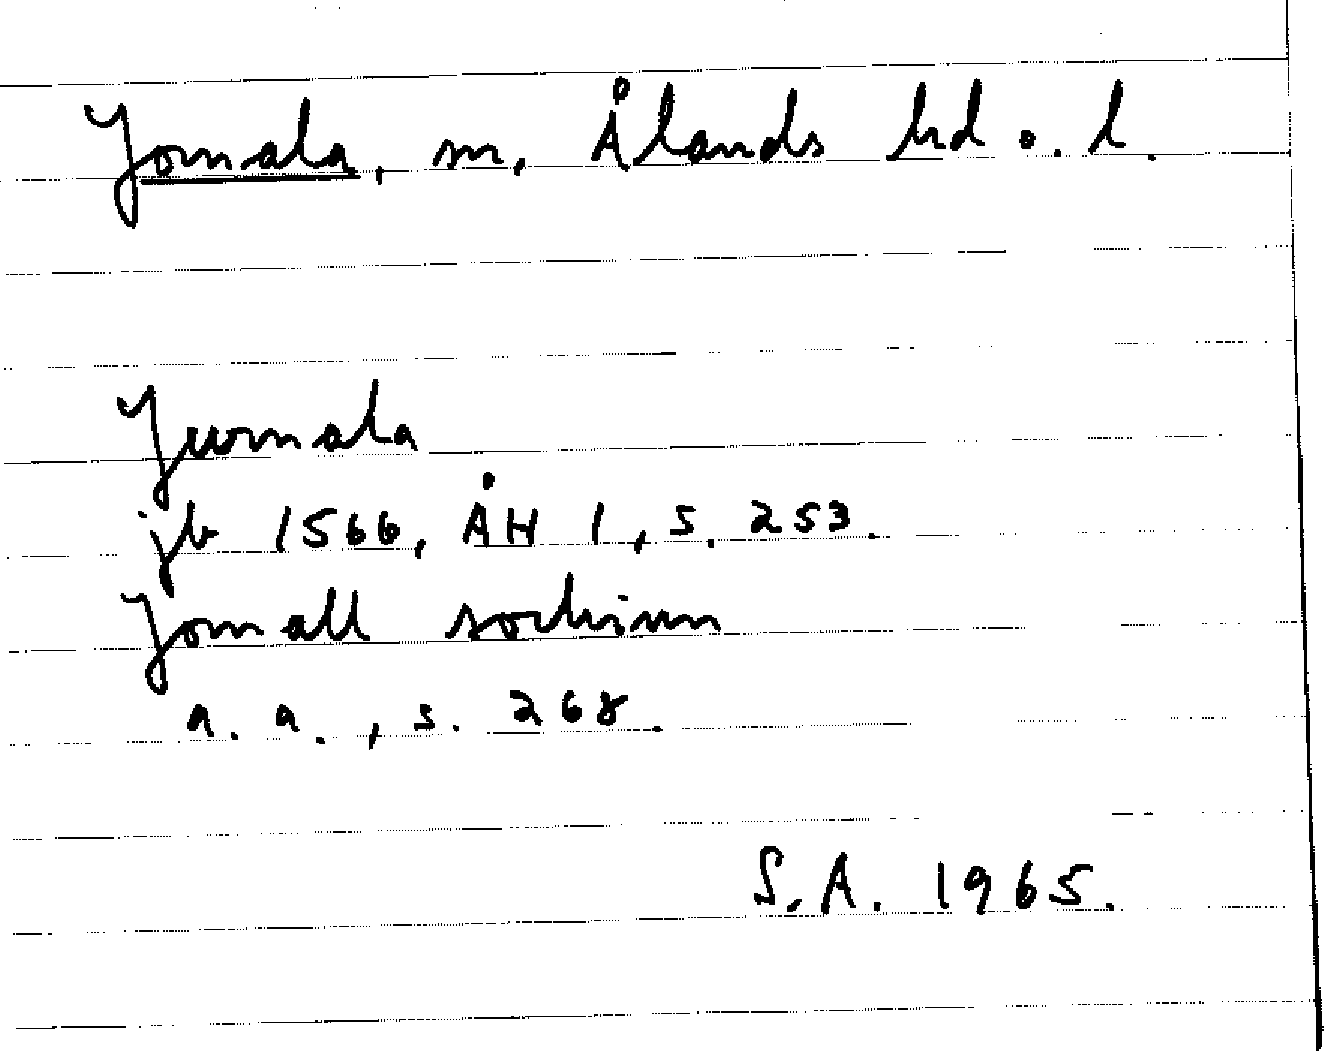 Jomala, sn, Ålands hd o. l.
Jwmala
jb 1566, ÅH 1, s. 253.
Jomall sochinn
a. a., s. 268.
S.A. 1965.